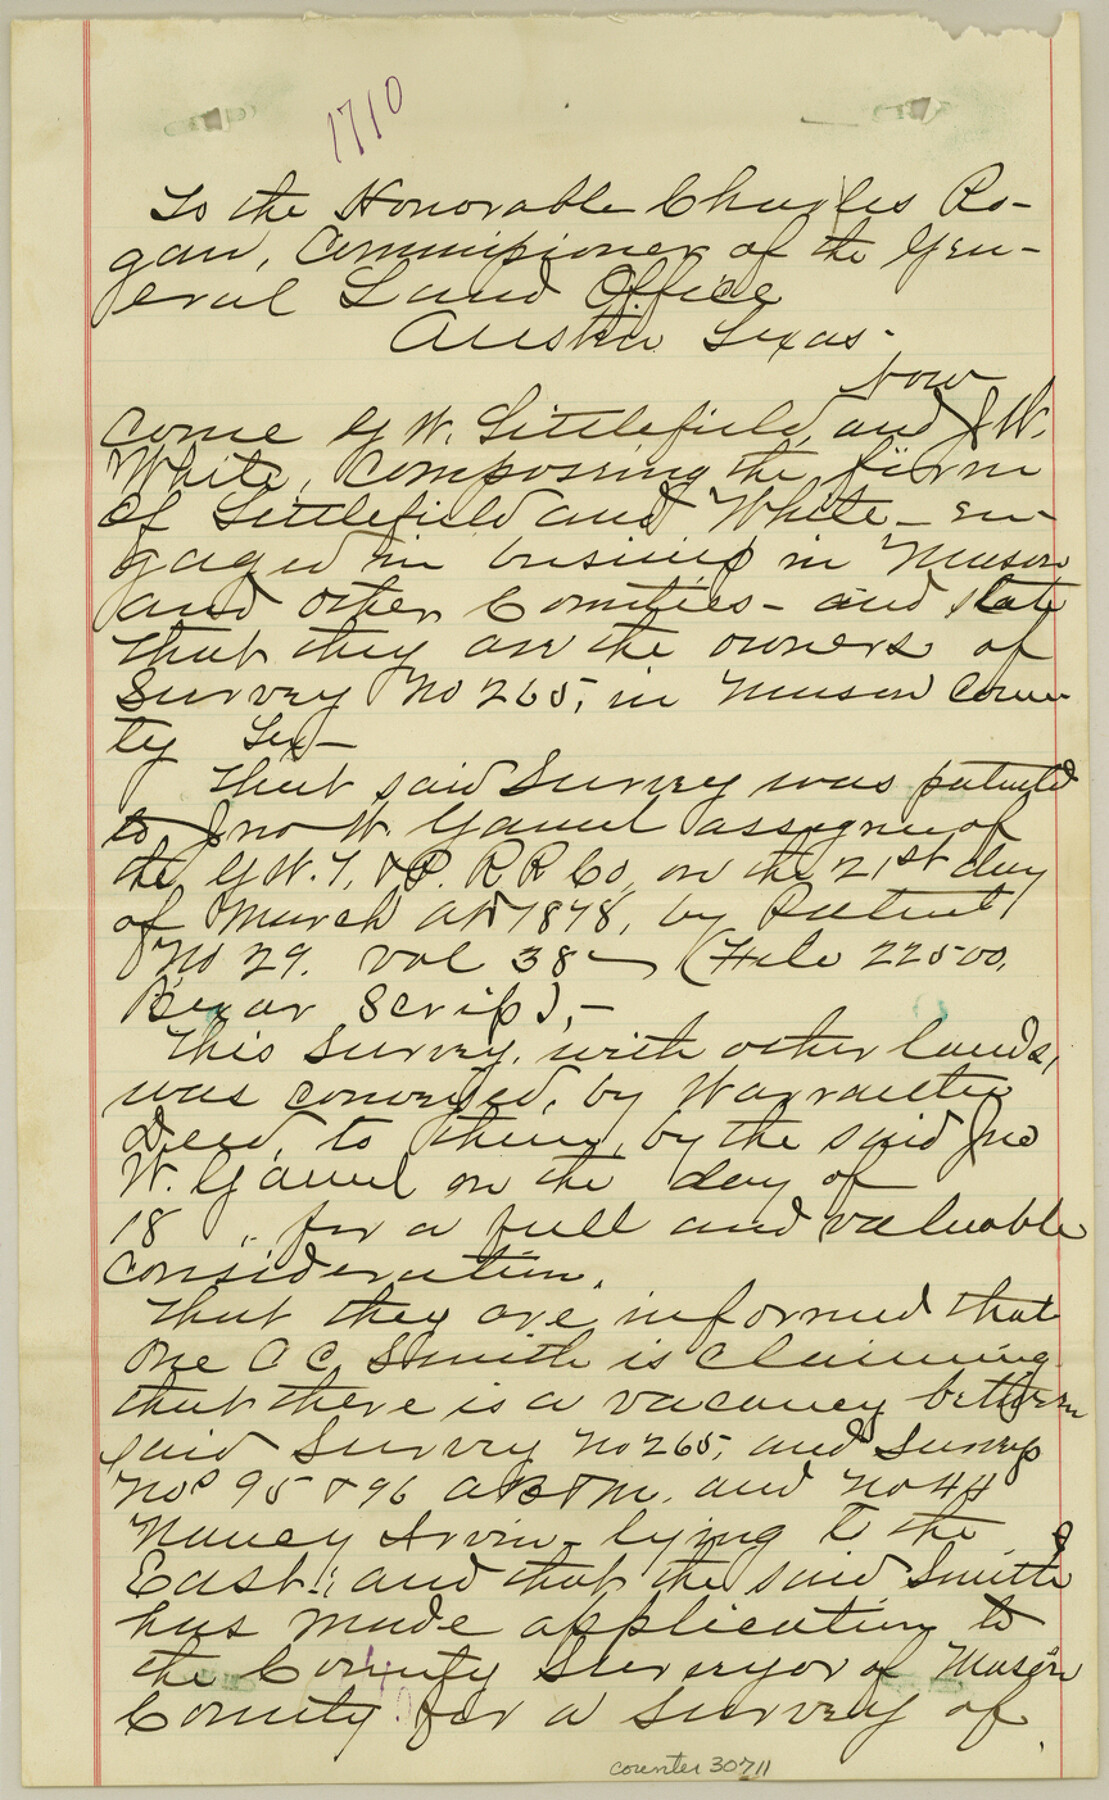 1710
To the Honorable Charles Ro-
gan, Commissioner of the Gen-
eral Land Office
Austin Texas.
Now
Come G W. Littlefield, and J W.
White, composing the firm
of Littlefield and White - en-
gaged in business in Mason
and other Counties - and state
that they are the owners of
Survey No 265, in Mason Coun-
ty Tex -
That said Survey was patented
to Jno W. Gamel assignee of
the G W. T. & P. R R Co, on the 21st day
of March AD 1878, by Patent
No 29. Vol 38 - (File 22500,
Bexar Scrip), -
This Survey, with other lands,
was conveyed, by Warrantee
Deed, to them, by the said Jno
W. Gamel on the day of
18 , for a full and valuable
consideration.
That they are informed that
one C C. Smith is claiming
that there is a vacancy between
said Survey No 265, and Surveys
Nos 95 & 96 AB&M. and No 44
Nancy Irvin - lying to the
East; and that the said Smith
has made application to
the County Surveyor of Mason
County for a survey of
counter 30711